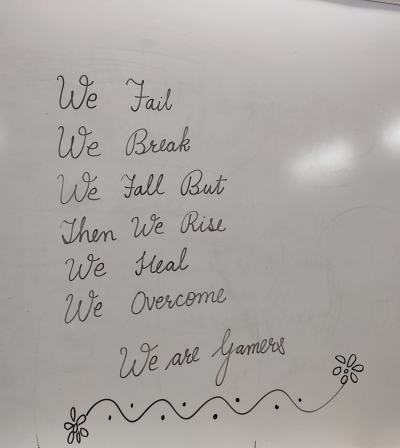 We Fail
We Break
We Fall But
Then We Rise
We Heal
We Overcome
We are Gamers